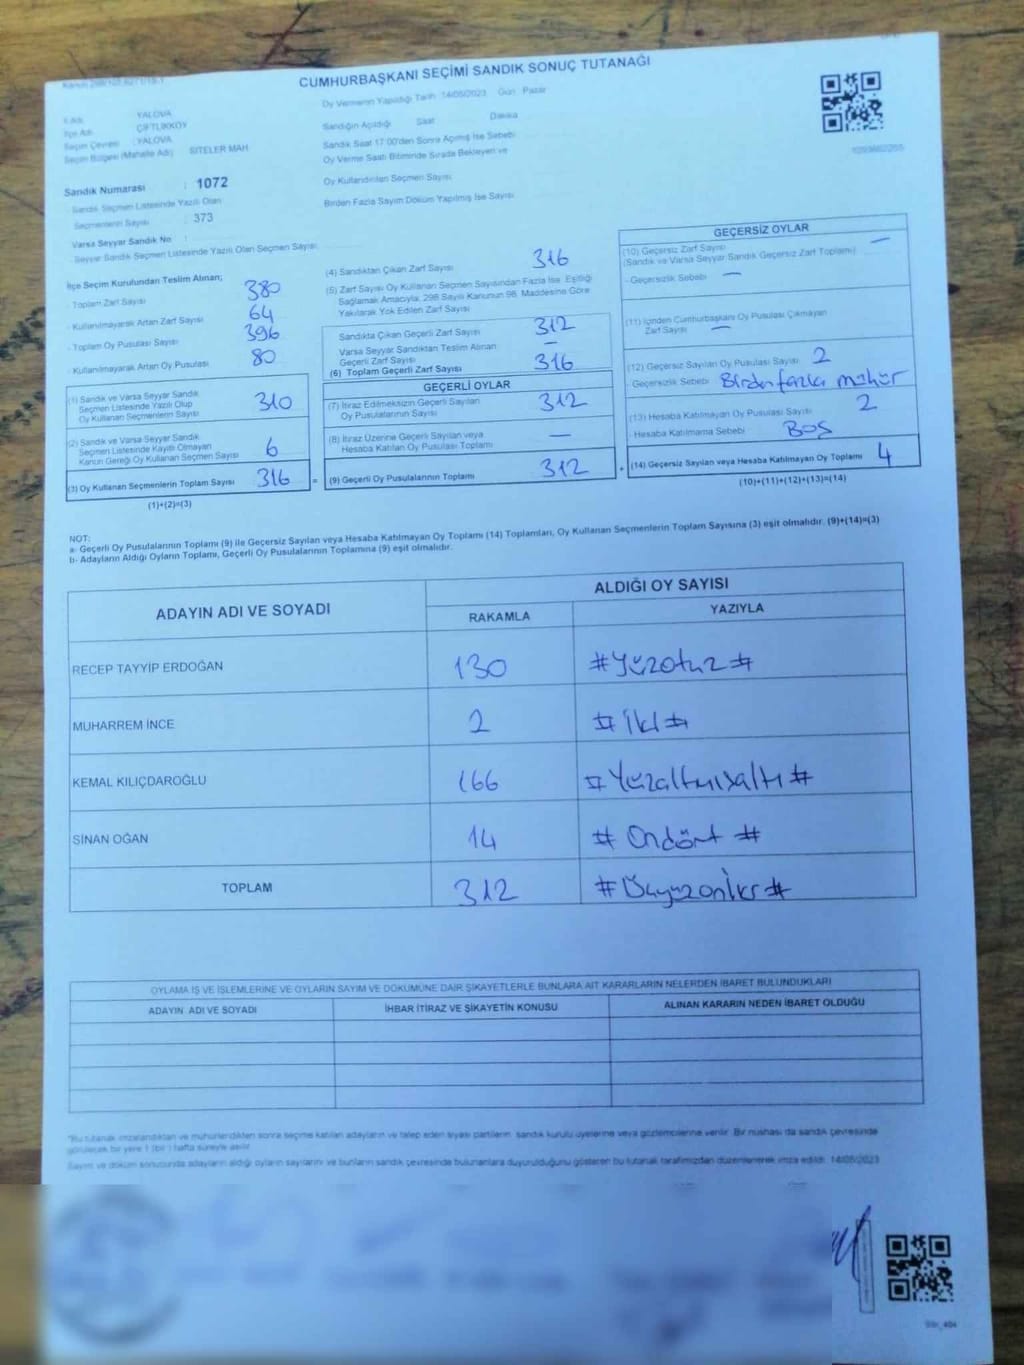 CUMHURBAŞKANI SEÇİMİ SANDIK SONUÇ TUTANAĞI
İl Adı YALOVA
İlçe Adı ÇİFTLİKKÖY
Seçim Çevresi : YALOVA
Seçim Bölgesi (Mahalle Adı) SİTELER MAH.
Sandık Numarası : 1072
Sandık Seçmen Listesinde Yazılı Olan
Seçmenlerin Sayısı : 373
Varsa Seyyar Sandık No :
Seyyar Sandık Seçmen Listesinde Yazılı Olan Seçmen Sayısı:
Oy Vermenin Yapıldığı Tarih: 14/05/2023 Gün: Pazar
Sandığın Açıldığı Saat Dakika
Sandık Saat 17:00'den Sonra Açılmış İse Sebebi
Oy Verme Saati Bitiminde Sırada Bekleyen ve
Oy Kullandırılan Seçmen Sayısı
Birden Fazla Sayım Döküm Yapılmış İse Sayısı
İlçe Seçim Kurulundan Teslim Alınan;
- Toplam Zarf Sayısı 380
- Kullanılmayarak Artan Zarf Sayısı 64
- Toplam Oy Pusulası Sayısı 396
- Kullanılmayarak Artan Oy Pusulası 80
(1) Sandık ve Varsa Seyyar Sandık
Seçmen Listesinde Yazılı Olup
Oy Kullanan Seçmenlerin Sayısı 310
(2) Sandık ve Varsa Seyyar Sandık
Seçmen Listesinde Kayıtlı Olmayan
Kanun Gereği Oy Kullanan Seçmen Sayısı 6
(3) Oy Kullanan Seçmenlerin Toplam Sayısı 316 =
(1)+(2)=(3)
(4) Sandıktan Çıkan Zarf Sayısı 316
(5) Zarf Sayısı Oy Kullanan Seçmen Sayısından Fazla İse, Eşitliği
Sağlamak Amacıyla, 298 Sayılı Kanunun 98. Maddesine Göre
Yakılarak Yok Edilen Zarf Sayısı
Sandıkta Çıkan Geçerli Zarf Sayısı 312
Varsa Seyyar Sandıktan Teslim Alınan
Geçerli Zarf Sayısı —
(6) Toplam Geçerli Zarf Sayısı 316
GEÇERLİ OYLAR
(7) İtiraz Edilmeksizin Geçerli Sayılan
Oy Pusulalarının Sayısı 312
(8) İtiraz Üzerine Geçerli Sayılan veya
Hesaba Katılan Oy Pusulası Toplamı —
(9) Geçerli Oy Pusulalarının Toplamı 312 +
GEÇERSİZ OYLAR
(10) Geçersiz Zarf Sayısı —
(Sandık ve Varsa Seyyar Sandık Geçersiz Zarf Toplamı)
- Geçersizlik Sebebi —
(11) İçinden Cumhurbaşkanı Oy Pusulası Çıkmayan
Zarf Sayısı —
(12) Geçersiz Sayılan Oy Pusulası Sayısı 2
- Geçersizlik Sebebi Birden fazla mühür
(13) Hesaba Katılmayan Oy Pusulası Sayısı 2
- Hesaba Katılmama Sebebi BOŞ
(14) Geçersiz Sayılan veya Hesaba Katılmayan Oy Toplamı 4
(10)+(11)+(12)+(13)=(14)
NOT:
a- Geçerli Oy Pusulalarının Toplamı (9) ile Geçersiz Sayılan veya Hesaba Katılmayan Oy Toplamı (14) Toplamları, Oy Kullanan Seçmenlerin Toplam Sayısına (3) eşit olmalıdır. (9)+(14)=(3)
b- Adayların Aldığı Oyların Toplamı, Geçerli Oy Pusulalarının Toplamına (9) eşit olmalıdır.
ADAYIN ADI VE SOYADI ALDIĞI OY SAYISI
RAKAMLA YAZIYLA
RECEP TAYYİP ERDOĞAN 130 #Yüzotuz#
MUHARREM İNCE 2 #İki#
KEMAL KILIÇDAROĞLU 166 #Yüzaltmışaltı#
SİNAN OĞAN 14 #Ondört#
TOPLAM 312 #Üçyüzoniki#
OYLAMA İŞ VE İŞLEMLERİNE VE OYLARIN SAYIM VE DÖKÜMÜNE DAİR ŞİKAYETLERLE BUNLARA AİT KARARLARIN NELERDEN İBARET BULUNDUKLARI
ADAYIN ADI VE SOYADI İHBAR İTİRAZ VE ŞİKAYETİN KONUSU ALINAN KARARIN NEDEN İBARET OLDUĞU
"Bu tutanak imzalandıktan ve mühürlendikten sonra seçime katılan adayların ve talep eden siyasi partilerin sandık kurulu üyelerine veya gözlemcilerine verilir. Bir nüshası da sandık çevresinde
görülecek bir yere 1 (bir) hafta süreyle asılır.
Sayım ve döküm sonucunda adayların aldığı oyların sayılarını ve bunların sandık çevresinde bulunanlara duyurulduğunu gösteren bu tutanak tarafımızdan düzenlenerek imza edildi. 14/05/2023